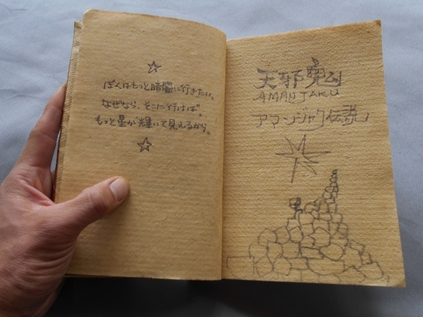 ☆
ぼくはもっと暗闇に行きたい。
なぜなら、そこに行けば
もっと星が輝いて見えるから。
☆
天邪鬼
AMANJAKU
アマンジャク伝説